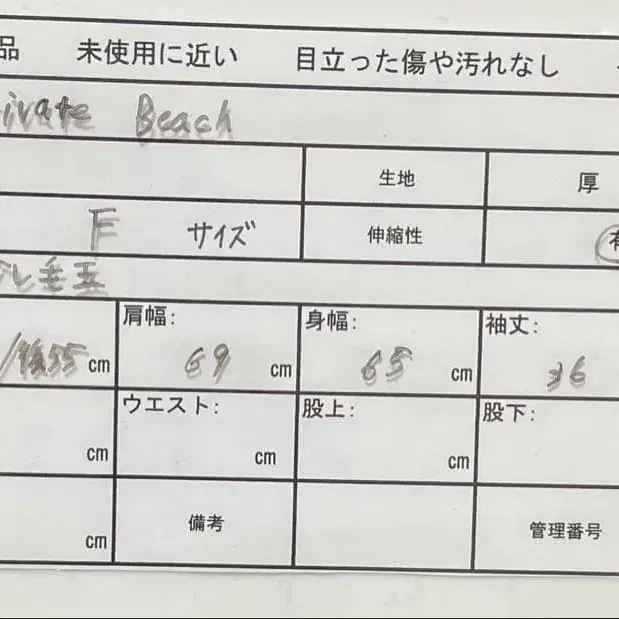 品 未使用に近い 目立った傷や汚れなし
ivate Beach
生地 厚
F サイズ 伸縮性 有
毛玉
肩幅: 身幅: 袖丈:
/後55 cm 69 cm 65 cm 36
ウエスト: 股上: 股下:
cm cm cm
cm 備考 管理番号